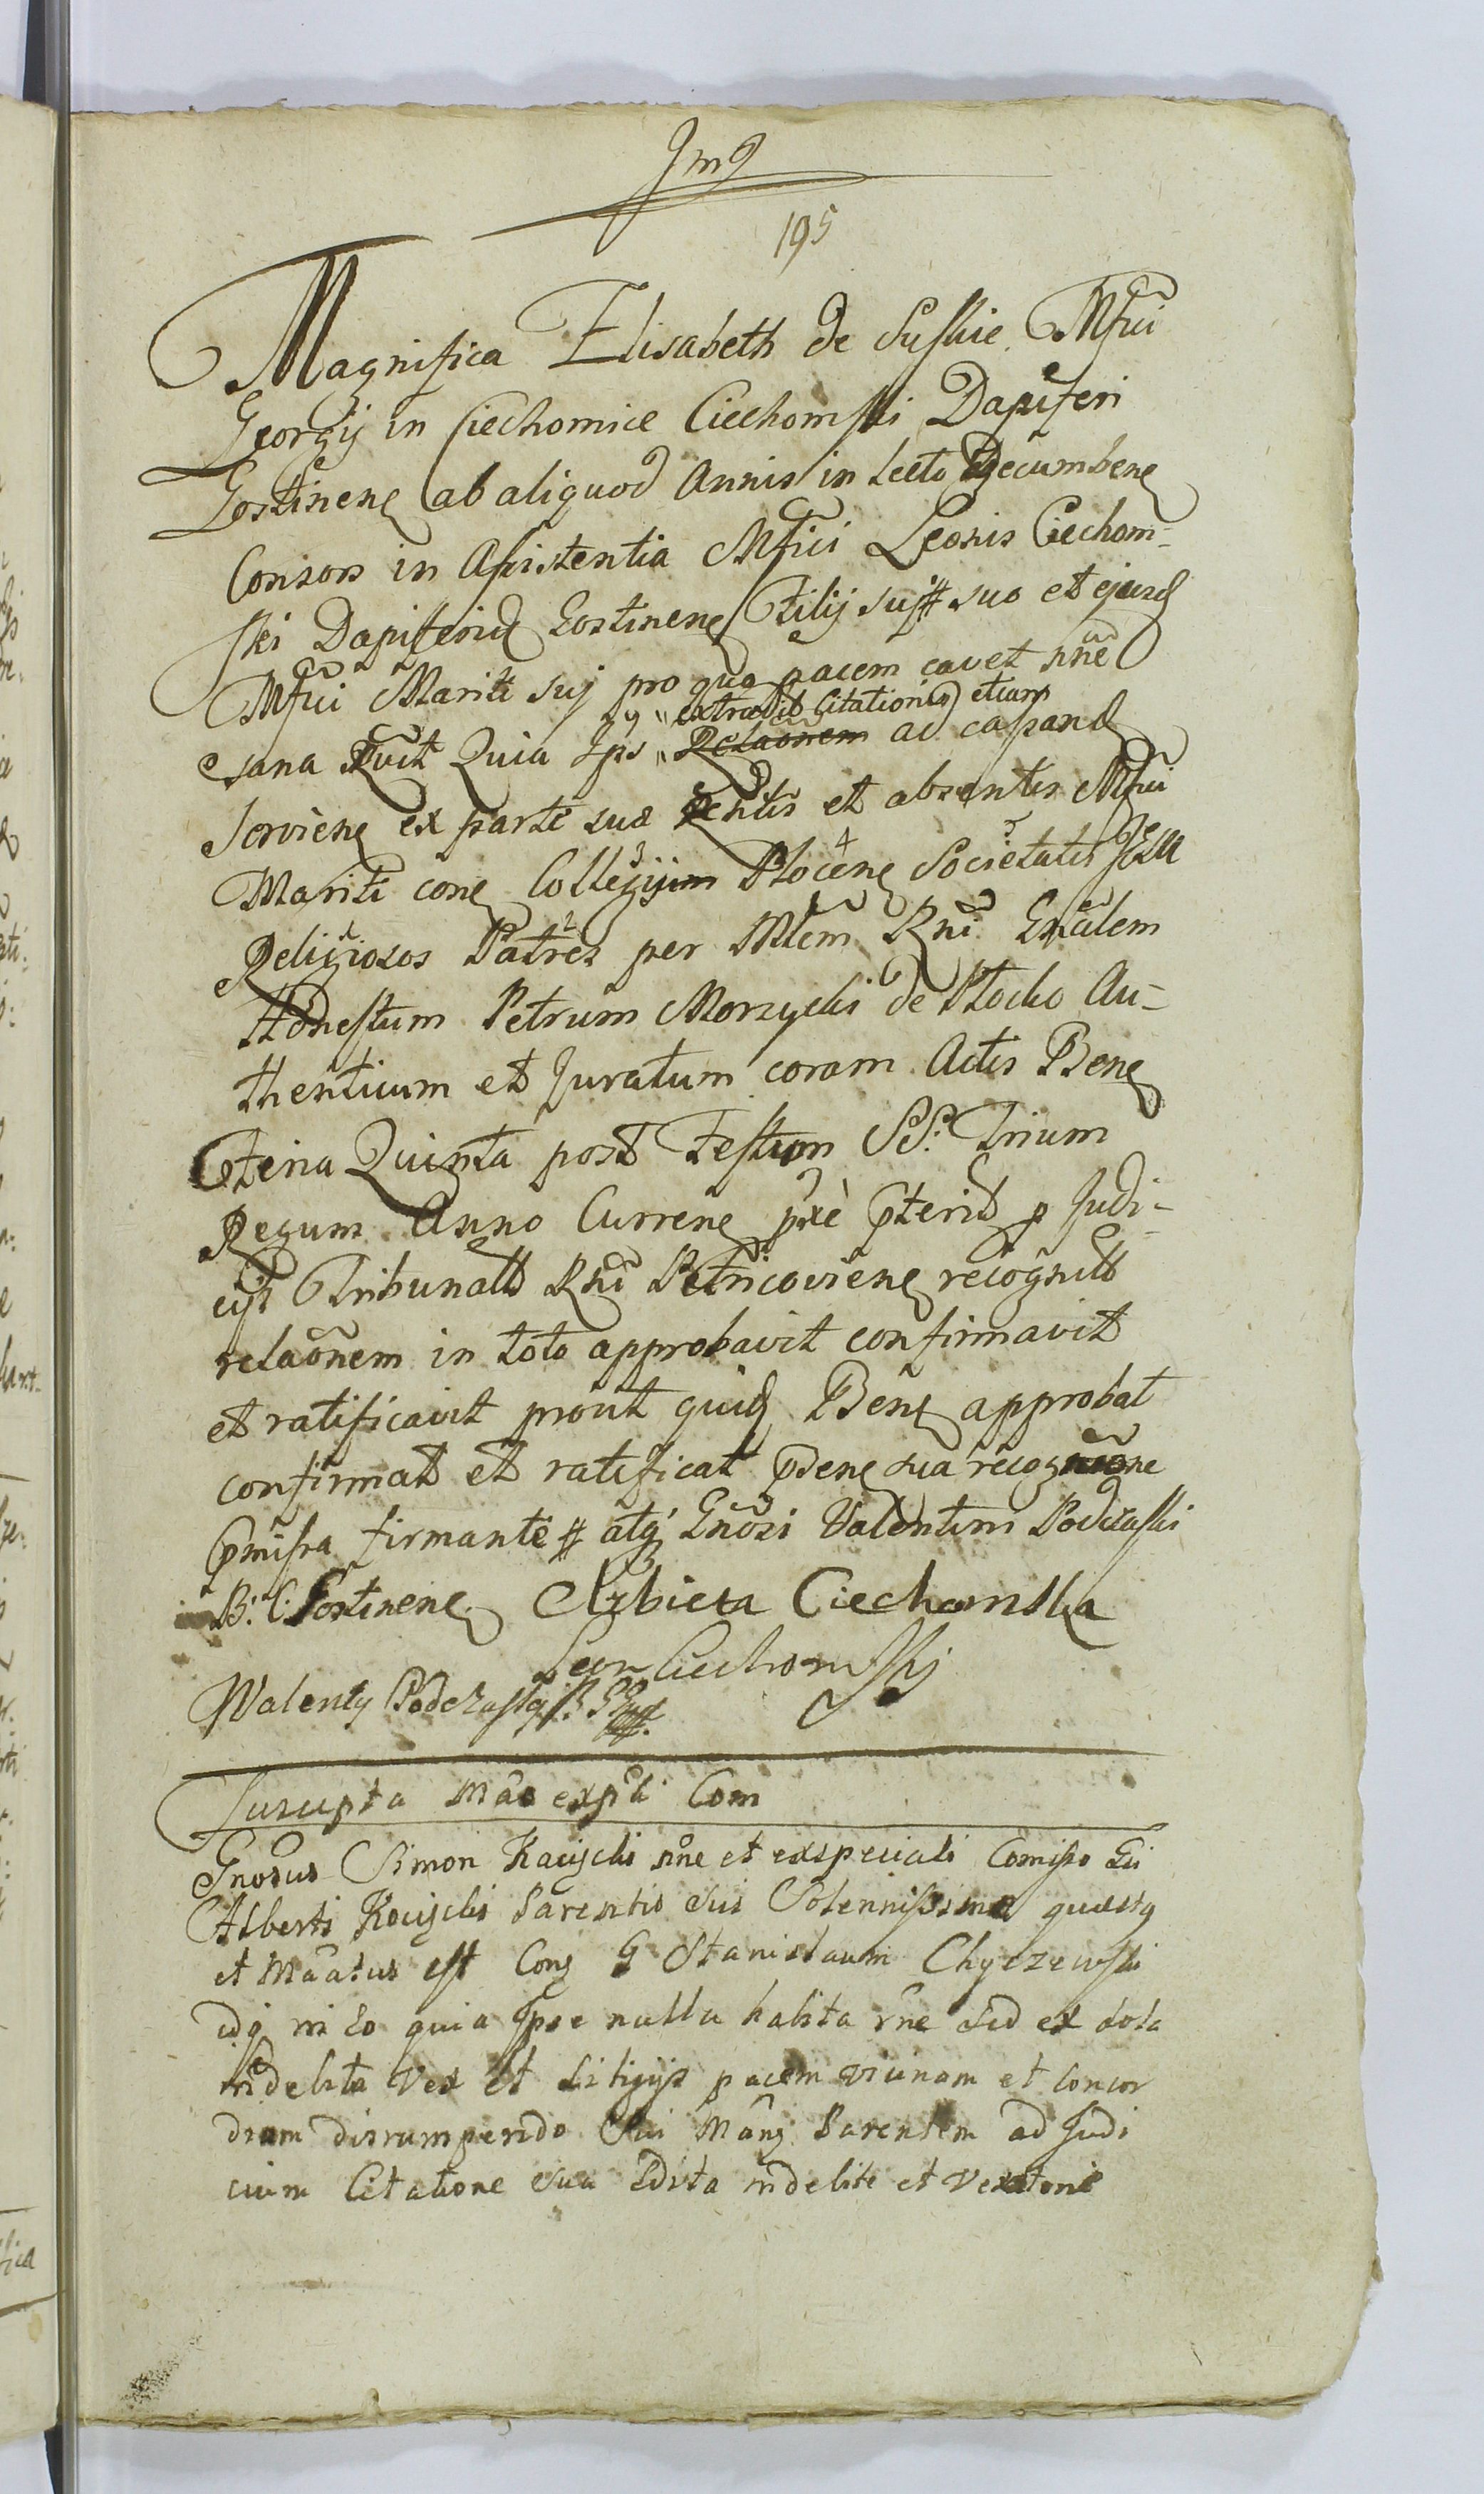 195
Magnifica Elisabeth de Suskie Mfci
Georgij in Ciechomice Ciechomski Dapiferi
Gostinen ab aliquod Annis in Lecto decumben
Consors in Assistentia Mfici Leonis Ciechom-
ski Dapiferid Gostinen Filij sui suo et ejusd
Mfci Mariti suj pro quo pacem cavet nne
extradit Citationis etiam
sana Quia Ips Relaonem ac cassand
servien ex parte sua et absentis Mfci
Mariti con Collegij Plocen Societatis Jesu
Religiosos Patres per Mtem Rni Gnalem
Honestum Petrum Morzycki de Plocko Au-
thenticum et Juratum coram Actis Pben
Feria Quinta post Festum SS. Trium
Regum Anno Curren pterit p Judi-
cijs Tribunalis Rni Petricovien recognit
relaonem in toto approbavit confirmavit
et ratificavit prout quid Pben approbat
confirmat et ratificat pden sua recognone
pmissa firmante atq Gnosi Valentini Podczaski
B: C: Gostinen Elzbieta Ciechomska
Leon Ciechomskj
Walenty Podczaski
Suscepta
Gnosus Simon Kacijcki nne et ex speciali Comisso Gsi
Alberti Kocijcki Parentis Sui Solennissime questq
et Maatus est Con G Stanislaum Chyczewski
idq in Eo quia Ipse nulla habita rne Sed ex sola
indebita Vex et Litigijs pacem vicinam et Concor
diam disrumpendo Sui Parentem ad Judi
cium Citatione sua Edita indebite et Vexatorie